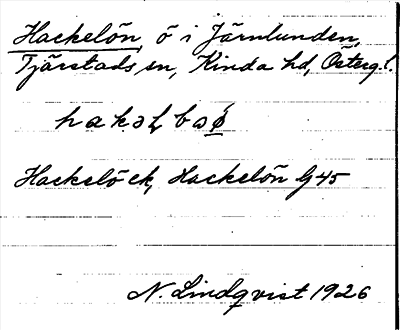 Hackelön, ö i Järnlunden,
Tjärstads sn, Kinda hd, Österg l.
Hackelö ek, Hackelön G 45
N. Lindqvist 1926